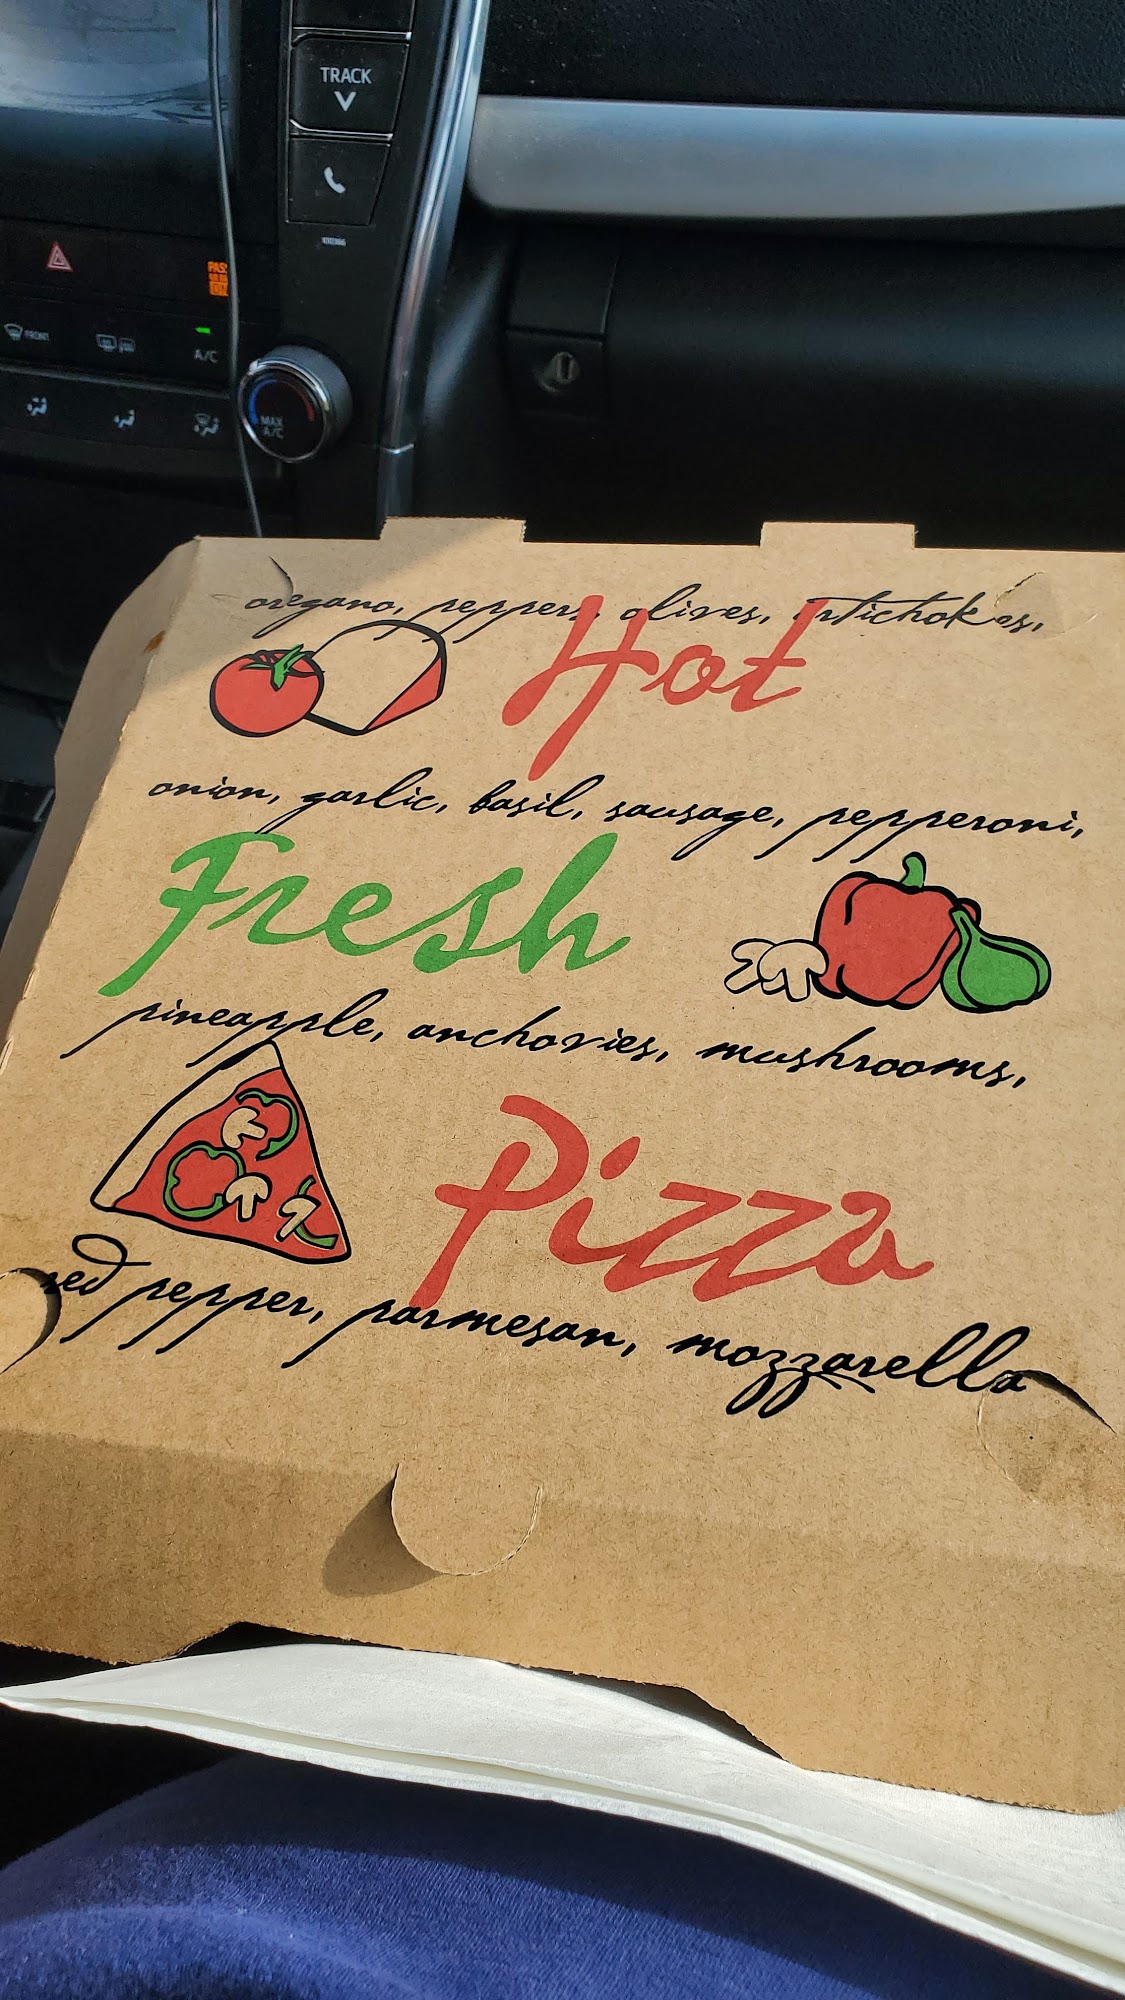 TRACK
FRONT
A/C
MAX
A/C
oregano, peppers, olives, artichokes,
Hot
onion, garlic, basil, sausage, pepperoni,
Fresh
pineapple, anchovies, mushrooms,
Pizza
red pepper, parmesan, mozzarella